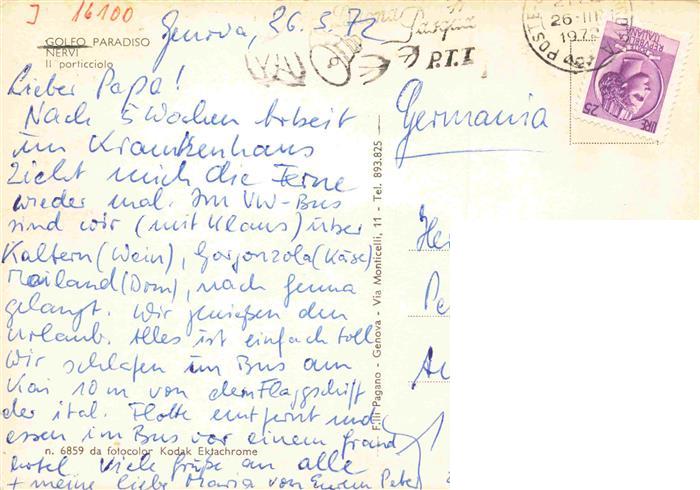 J 16100
GOLFO PARADISO
NERVI
Il porticciolo
Genova, 26.3.72
Buona Pasqua
P.T.T
POSTE
26-III
197
REPUBBLICA ITALIANA
LIRE 25
Lieber Papa!
Nach 5 Wochen Arbeit
im Krankenhaus
zieht mich die Ferne
wieder mal. Im VW-Bus
sind wir (mit Klaus) über
Kaltern (Wein), Gorgonzola (Käse)
Mailand (Dom), nach Genua
gelangt. Wir genießen den
Urlaub. Alles ist einfach toll
Wir schlafen im Bus am
Kai 10 m von dem Flaggschiff
der ital. Flotte entfernt und
essen im Bus vor einem Grand
hotel Viele Grüße an alle
+ meine liebe Maria von Eurem Peter
n. 6859 da fotocolor Kodak Ektachrome
F.lli Pagano - Genova - Via Monticelli, 11 - Tel. 893.825
Germania
He
Pe
Au